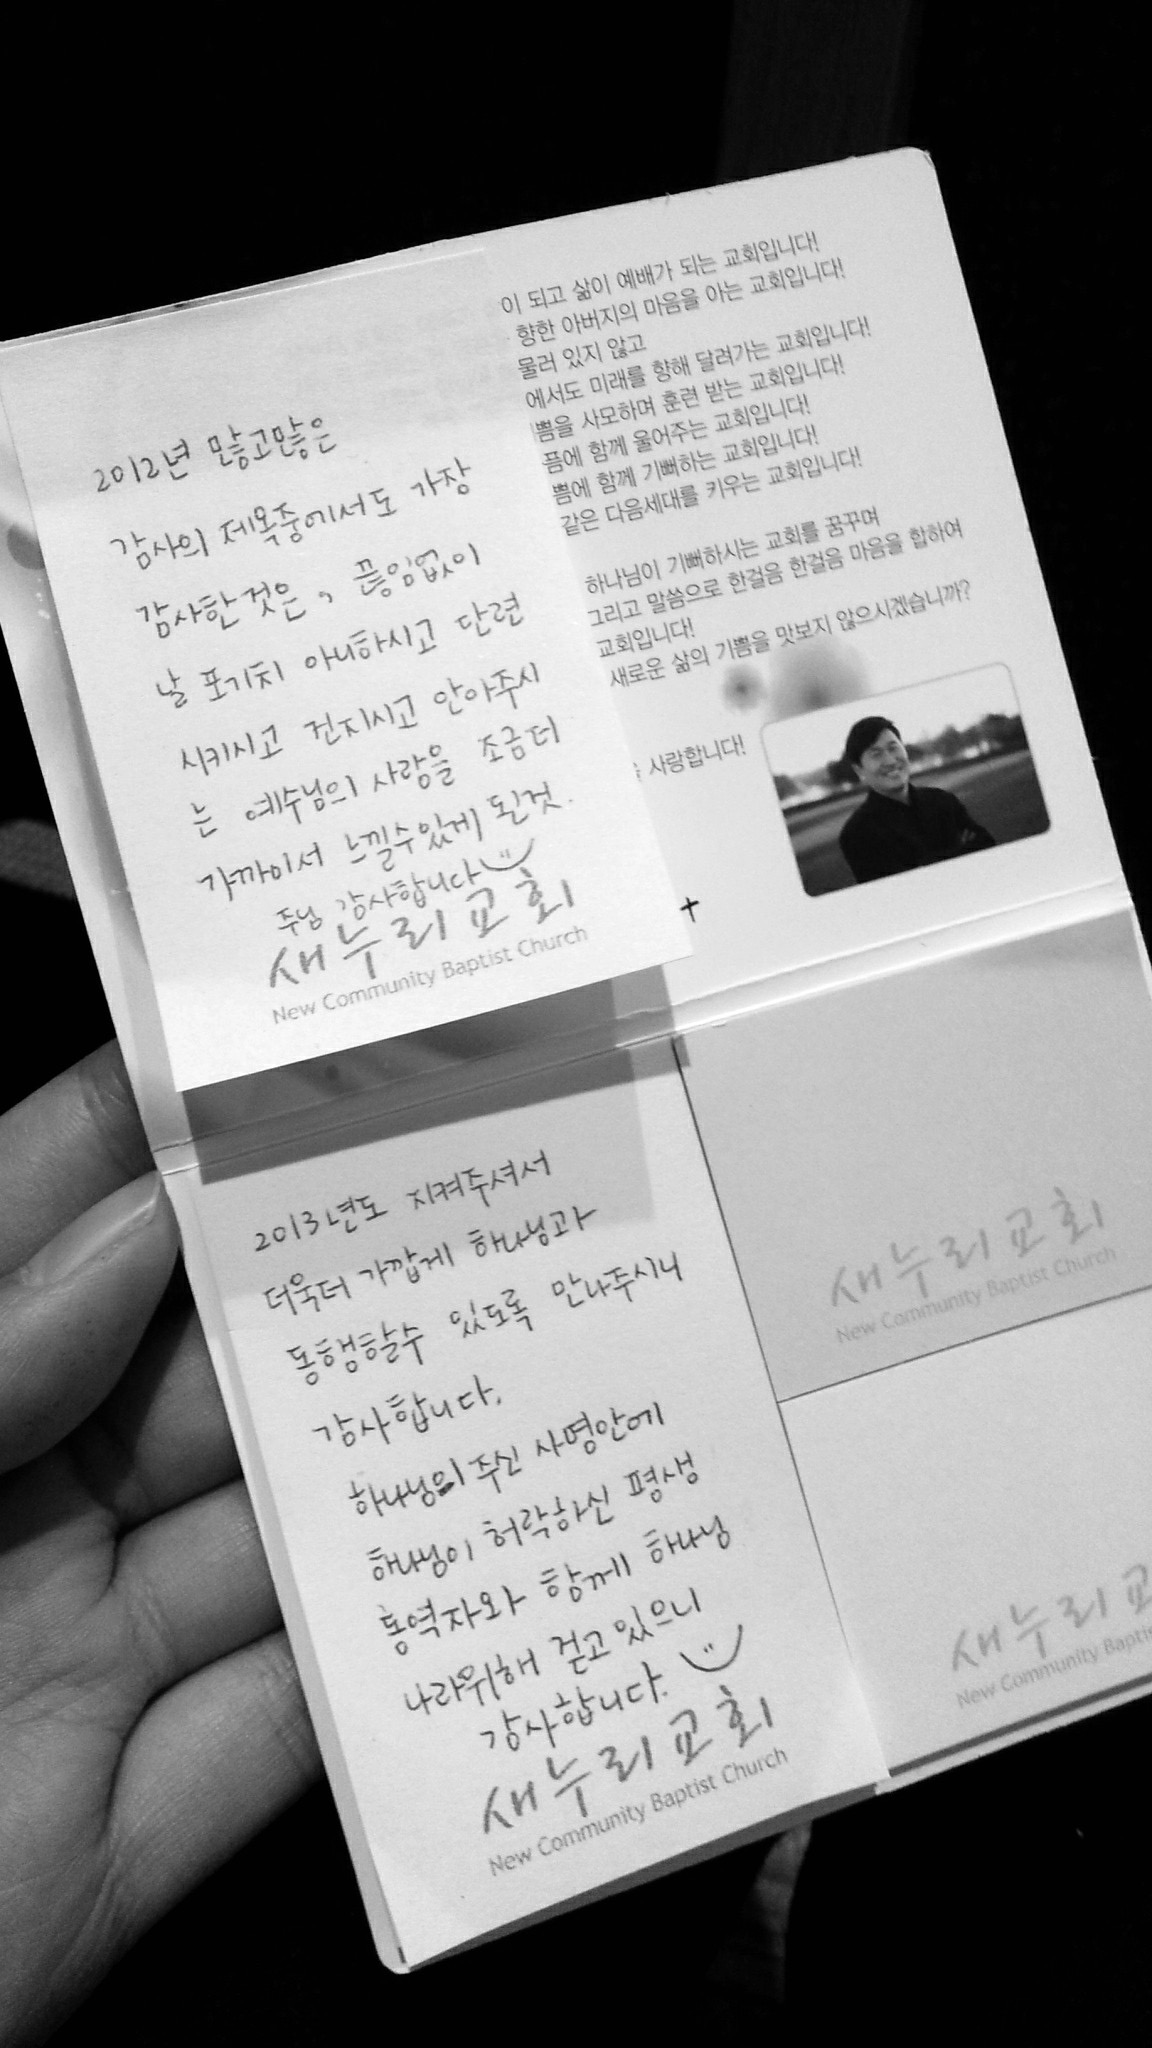 2012년 많고많은
감사의 제목중에서도 가장
감사한것은, 끊임없이
날 포기치 아니하시고 단련
시키시고 건지시고 안아주시
는 예수님의 사랑을 조금더
가까이서 느낄수있게 된것.
주님 감사합니다
새누리교회
New Community Baptist Church
이 되고 삶이 예배가 되는 교회입니다!
향한 아버지의 마음을 아는 교회입니다!
물러 있지 않고
에서도 미래를 향해 달려가는 교회입니다!
쁨을 사모하며 훈련 받는 교회입니다!
픔에 함께 울어주는 교회입니다!
쁨에 함께 기뻐하는 교회입니다!
같은 다음세대를 키우는 교회입니다!
하나님이 기뻐하시는 교회를 꿈꾸며
그리고 말씀으로 한걸음 한걸음 마음을 합하여
교회입니다!
새로운 삶의 기쁨을 맛보지 않으시겠습니까?
사랑합니다!
2013년도 지켜주셔서
더욱더 가깝게 하나님과
동행할수 있도록 만나주시니
감사합니다.
하나님의 주신 사명안에
하나님이 허락하신 평생
동역자와 함께 하나님
나라위해 걷고있으니
감사합니다.
새누리교회
New Community Baptist Church
새누리교회
New Community Baptist Church
새누리교
New Community Baptis